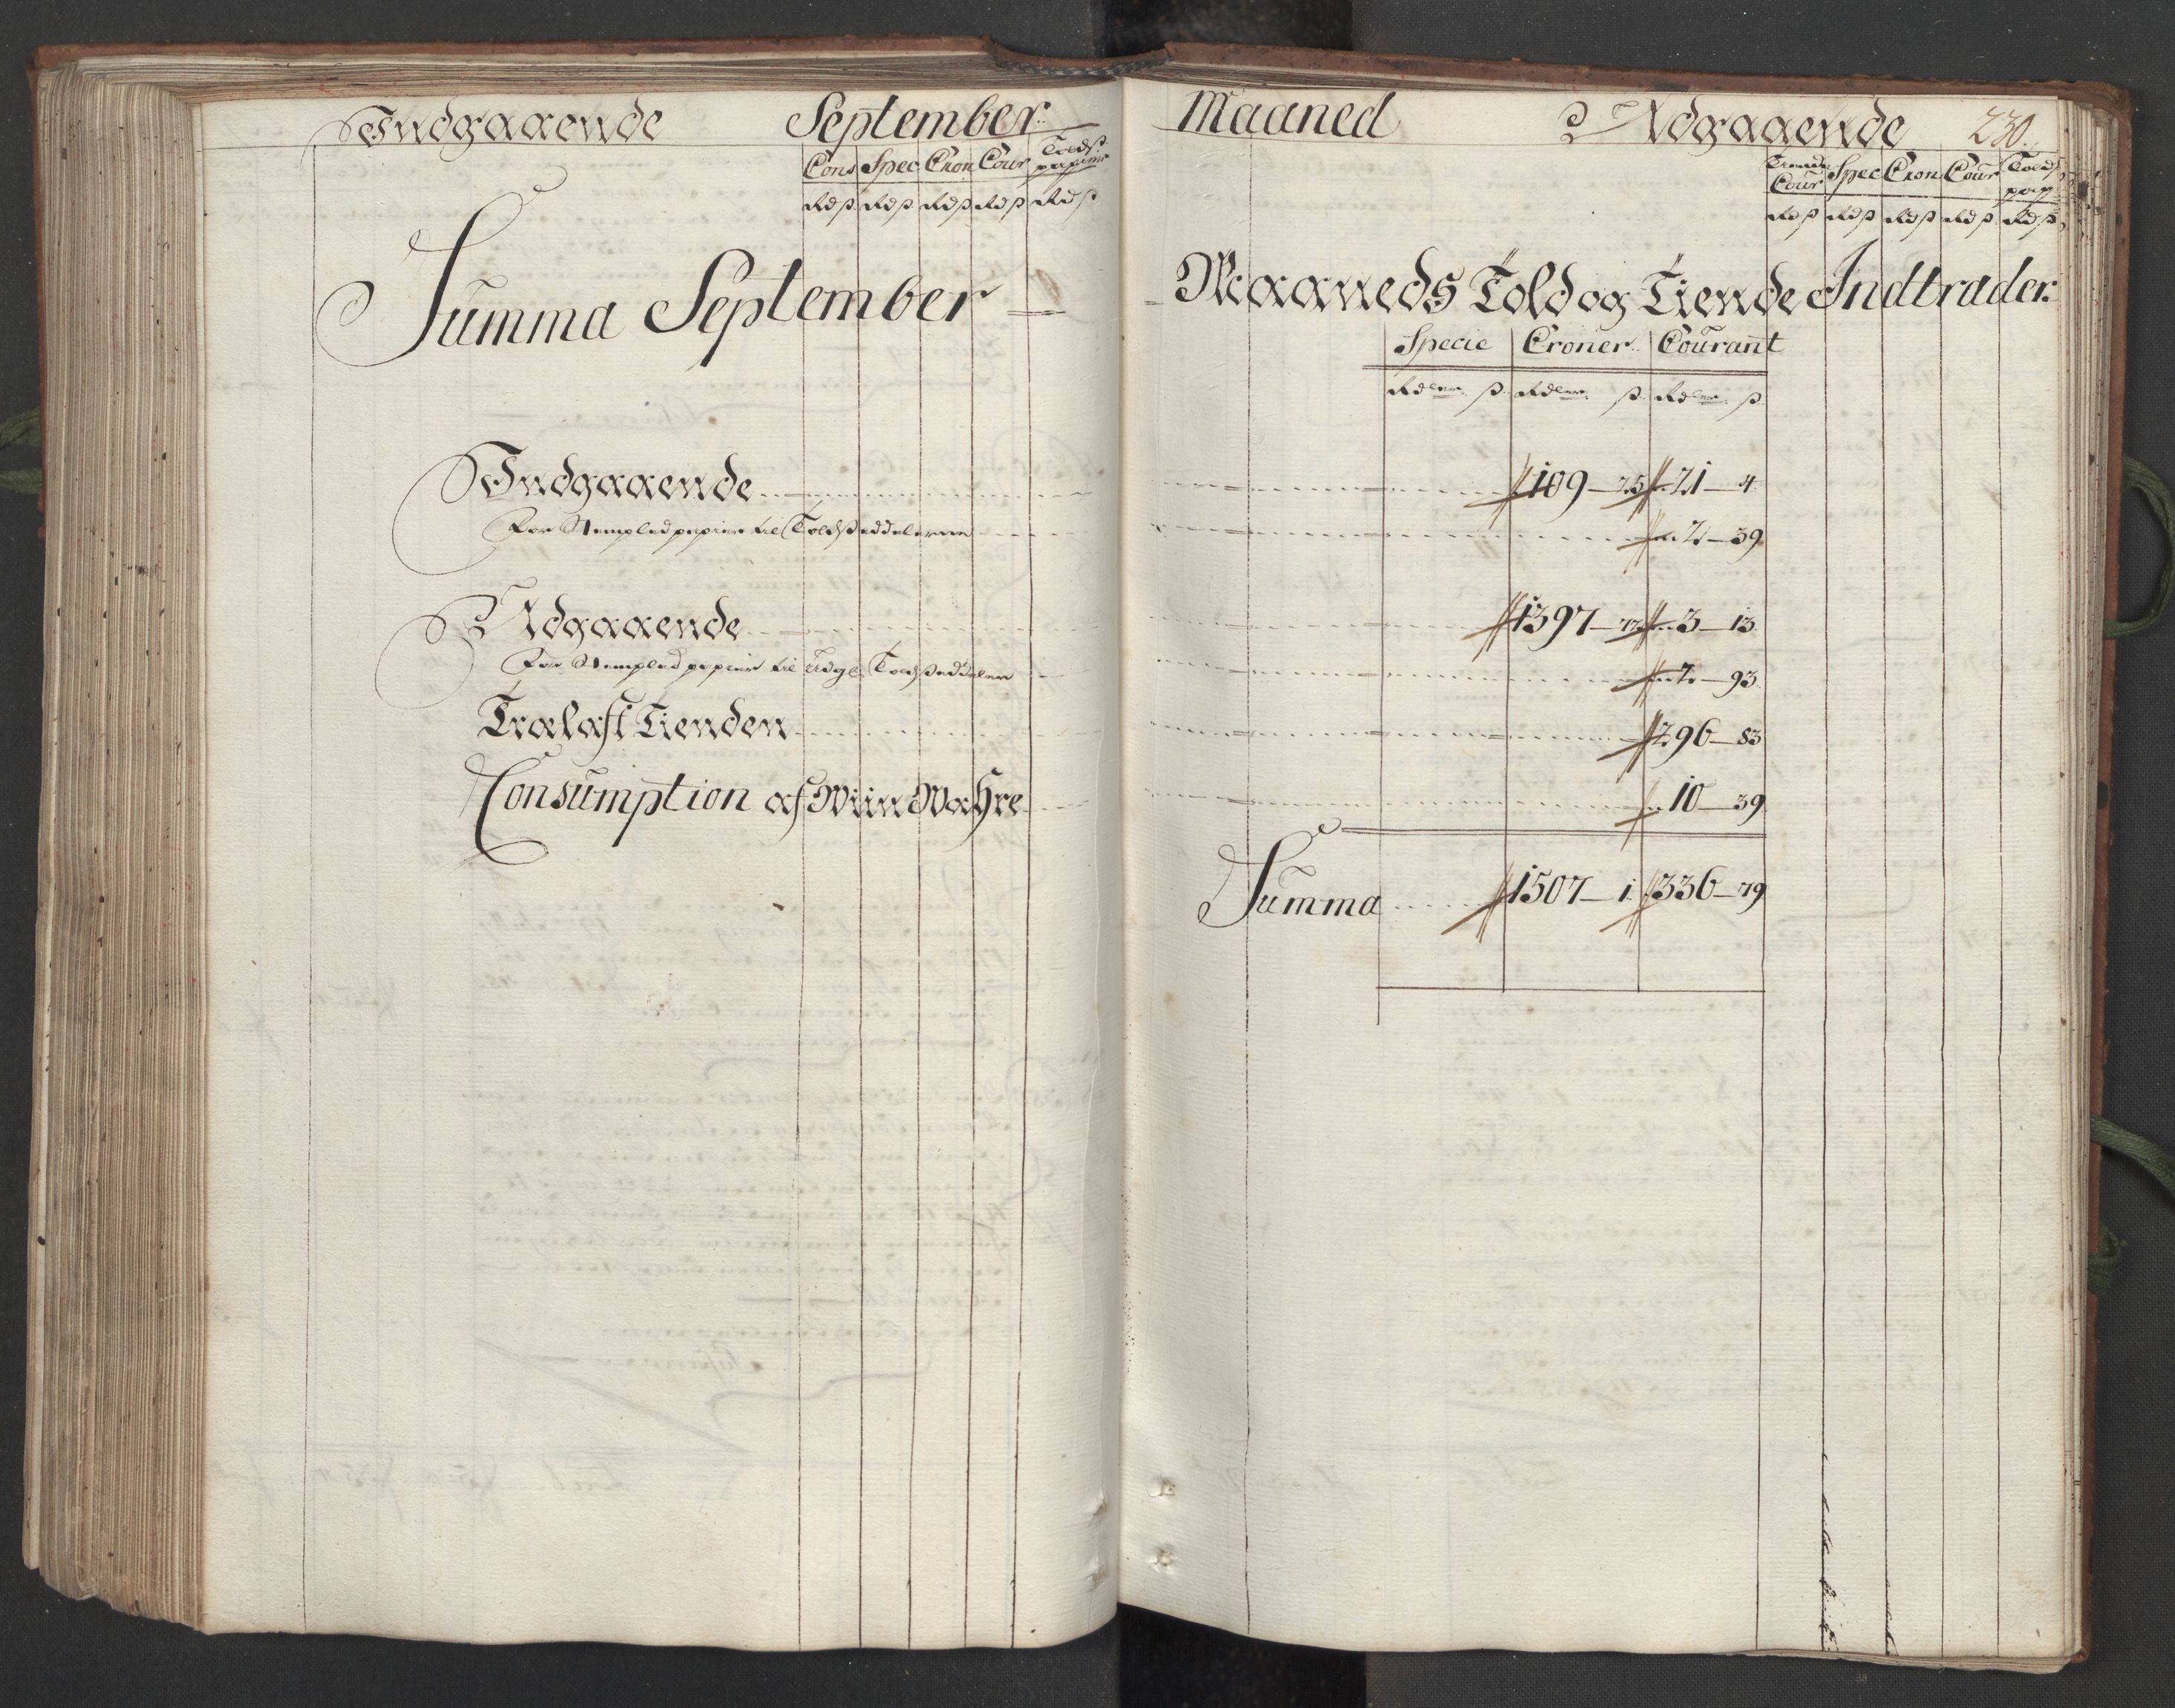 Indgaaende September
Cons Spec Cron Cour Tolds: papiir
Rd ß Rd ß Rd ß Rd ß Rd ß
Summa September
Indgaaende
For Stempledpapiir til Toldsedlerne
Udgaaende
For Stempled papiir til Udg: Toldsedler
Trælast Tienden
Consumption af Viin Wahre
Maaned Udgaaende 230.
Tiende Cour Spec Cron Cour Tolds pap
Rd ß Rd ß Rd ß Rd ß Rd ß
Maaneds Told og Tiende Indtrader.
Specie Croner Courant
Rdler ß Rdler ß Rdler ß
109 — 25 21 — 4
2 — 39
1397 — 72 3 — 13
2 — 93
296 — 83
10 — 39
Summa 1507 — 1 336 — 79